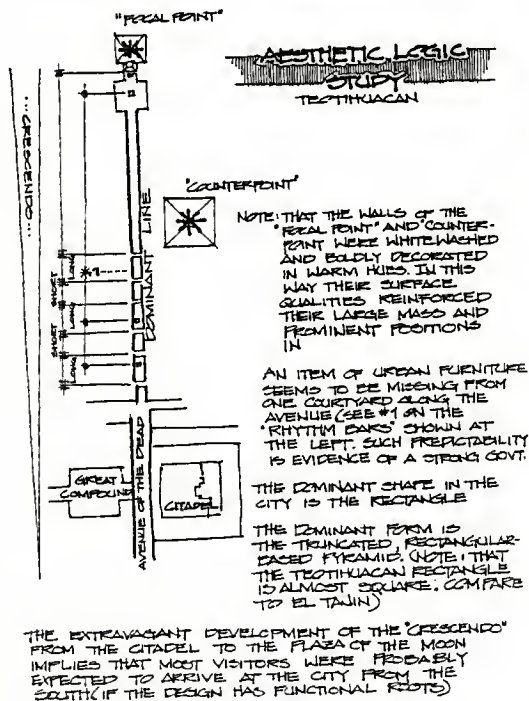 "FOCAL POINT"
AESTHETIC LOGIC
STUDY
TEOTIHUACAN
...CRESCENDO...
"COUNTERPOINT"
DOMINANT LINE
LONG
SHORT
LONG
SHORT
LONG
*1
NOTE: THAT THE WALLS OF THE
"FOCAL POINT" AND "COUNTER-
POINT WERE WHITEWASHED
AND BOLDLY DECORATED
IN WARM HUES. IN THIS
WAY THEIR SURFACE
QUALITIES REINFORCED
THEIR LARGE MASS AND
PROMINENT POSITIONS
IN
AN ITEM OF URBAN FURNITURE
SEEMS TO BE MISSING FROM
ONE COURTYARD ALONG THE
AVENUE (SEE #1 ON THE
"RHYTHM BARS" SHOWN AT
THE LEFT. SUCH PREDICTABILITY
IS EVIDENCE OF A STRONG GOVT.
THE DOMINANT SHAPE IN THE
CITY IS THE RECTANGLE
THE DOMINANT FORM IS
THE TRUNCATED, RECTANGULAR-
BASED PYRAMID. (NOTE: THAT
THE TEOTIHUACAN RECTANGLE
IS ALMOST SQUARE. COMPARE
TO EL TAJIN)
GREAT
COMPOUND
AVENUE OF THE DEAD
CITADEL
THE EXTRAVAGANT DEVELOPMENT OF THE "CRESCENDO"
FROM THE CITADEL TO THE PLAZA OF THE MOON
IMPLIES THAT MOST VISITORS WERE PROBABLY
EXPECTED TO ARRIVE AT THE CITY FROM THE
SOUTH (IF THE DESIGN HAS FUNCTIONAL ROOTS)